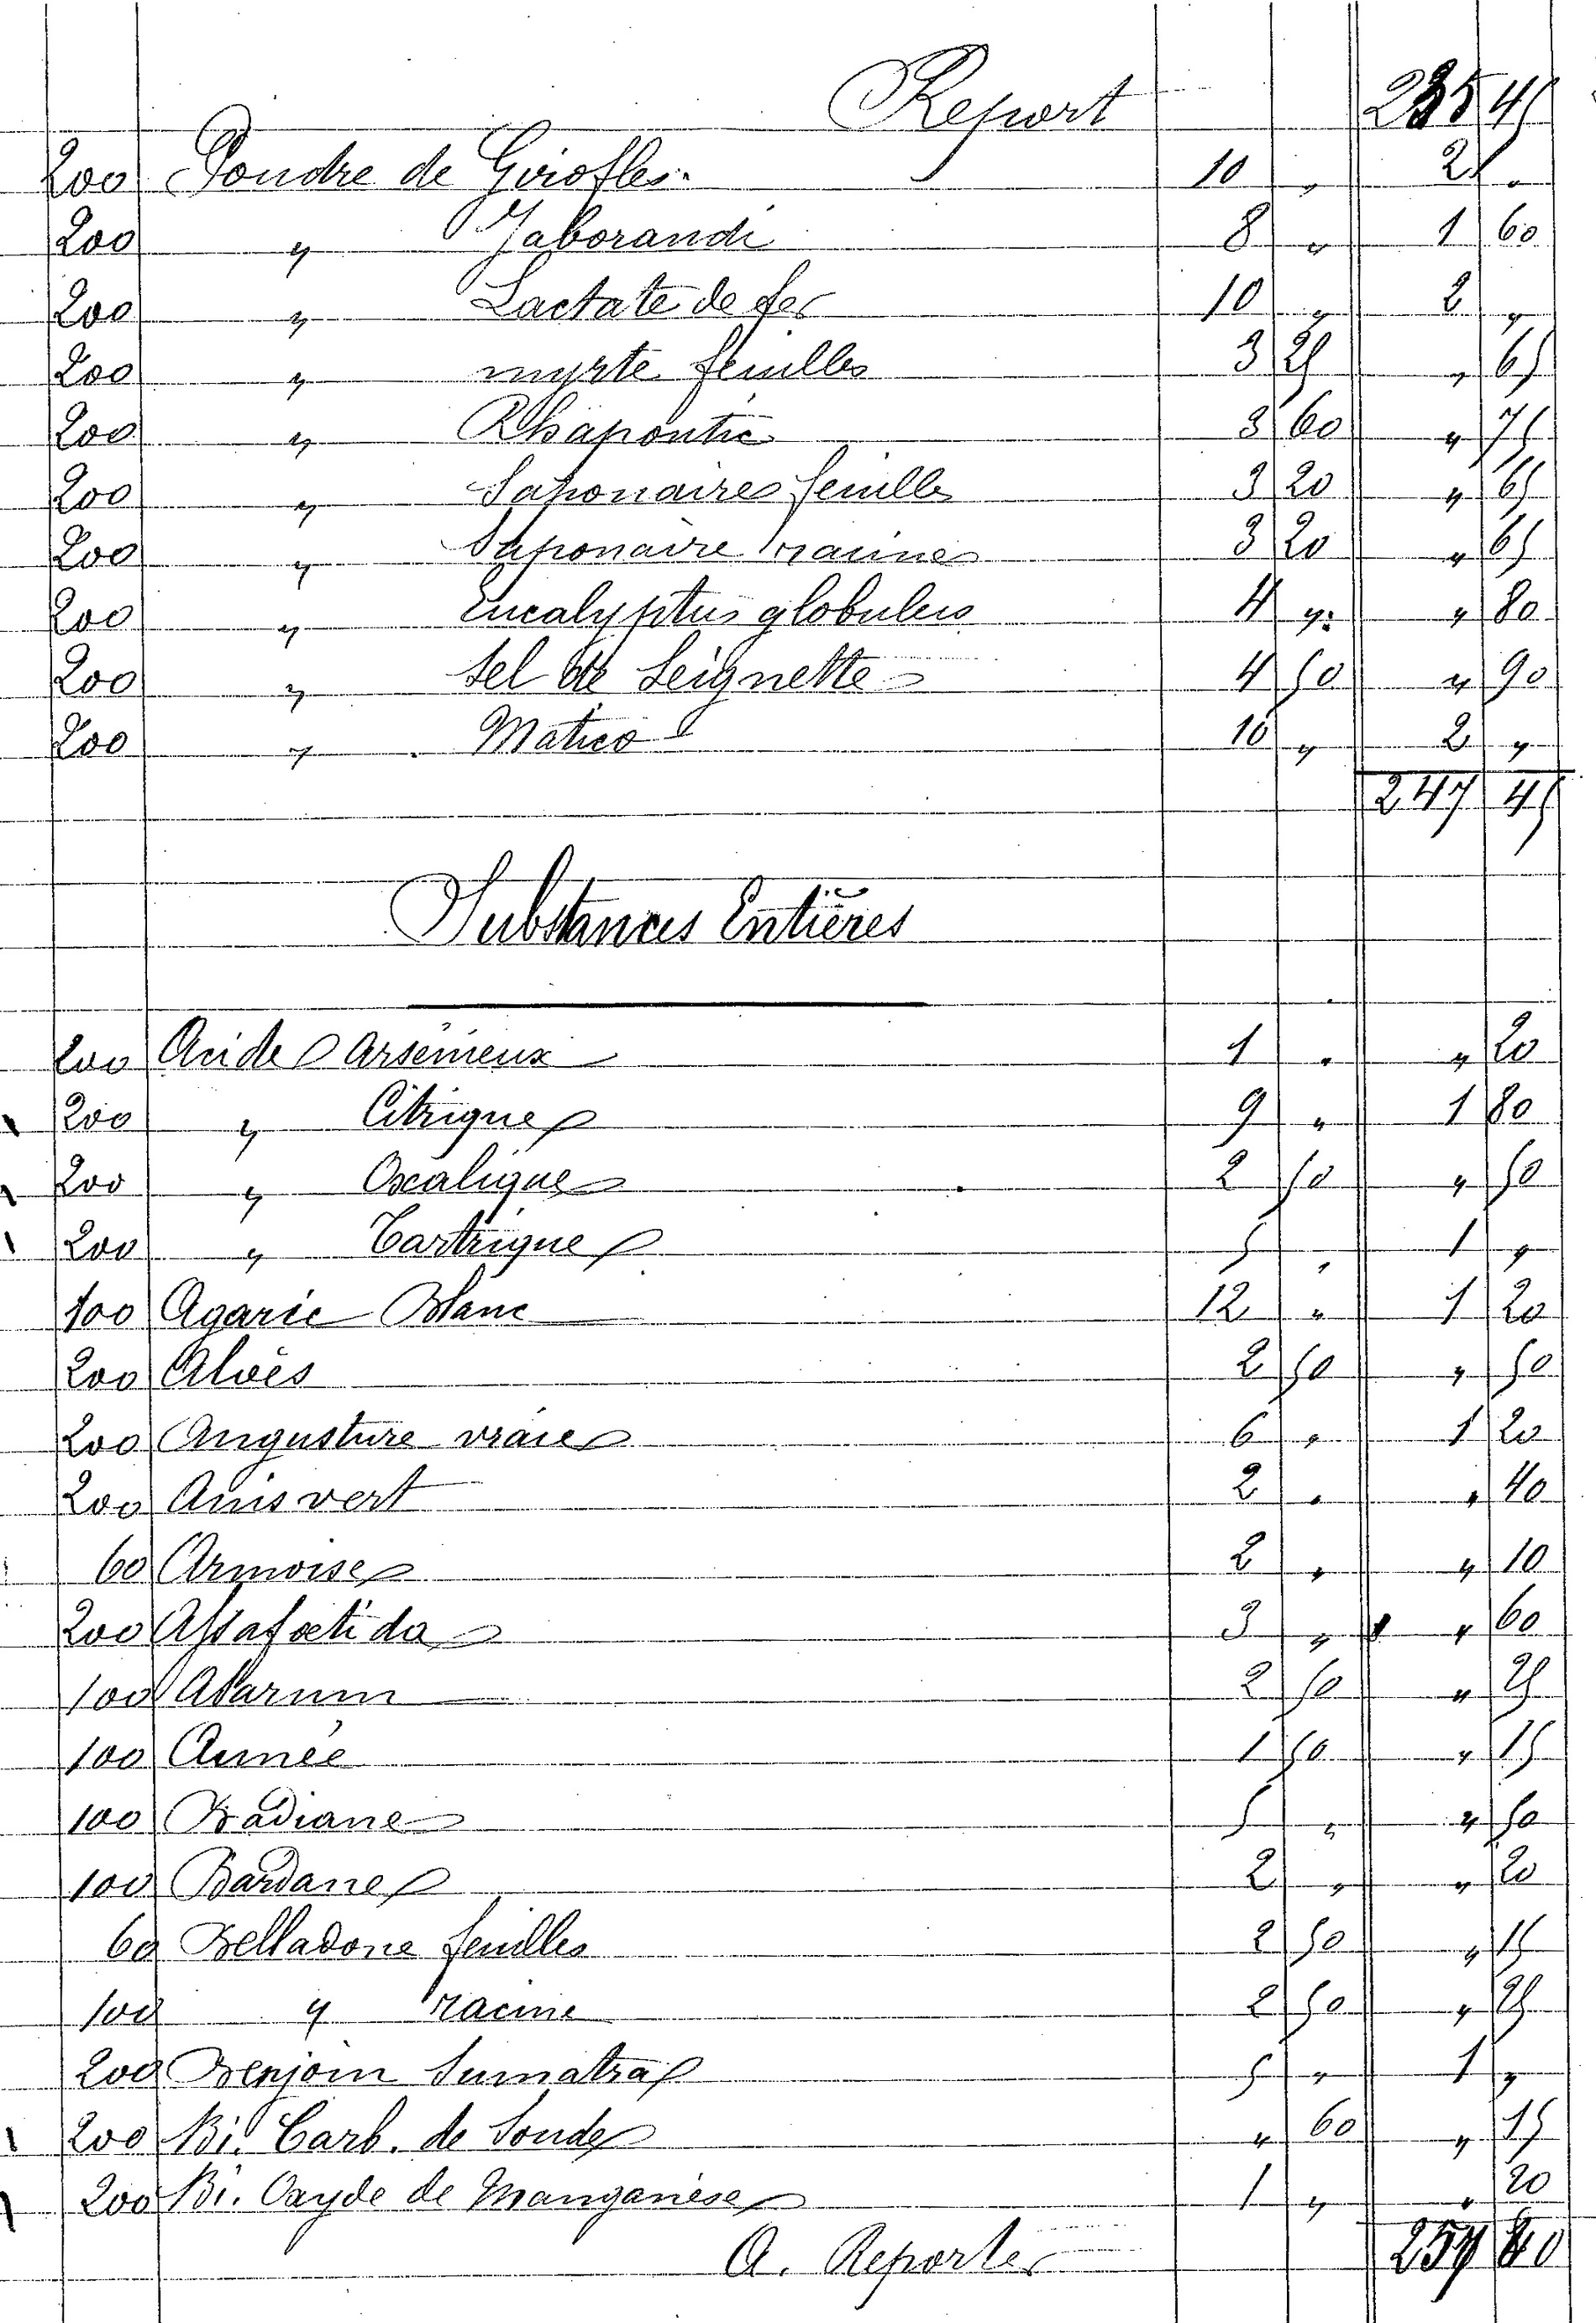 Report 235 45
200 Poudre de Girofles. 10 " 2 "
200 " Jaborandi 8 " 1 60
200 " Lactate de fer 10 " 2 "
200 " myrte feuilles 3 25 " 65
200 " Rhapontic 3 60 " 75
200 " Saponaires feuilles 3 20 " 65
200 " Saponaire racines 3 20 " 65
200 " Eucalyptus globulus 4 " " 80
200 " Sel de Seignette 4 50 " 90
200 " Matico 10 " 2 "
247 45
Substances Entières
200 Acide Arsénieux 1 " " 20
200 " Citrique 9 " 1 80
200 " Oxalique 2 50 " 50
200 " Tartrique 5 " 1 "
100 Agaric Blanc 12 " 1 20
200 Aloès 2 50 " 50
200 Angusture vraie 6 " 1 20
200 Anis vert 2 " " 40
60 Armoise 2 " " 10
200 Assafoetida 3 " " 60
100 Asarum 2 50 " 25
100 Aunée 1 50 " 15
100 Badiane 5 " " 50
100 Bardane 2 " " 20
60 Belladone feuilles 2 50 " 15
100 " racine 2 50 " 25
200 Benjoin Sumatra 5 " 1 "
200 Bi. Carb. de Soude " 60 " 15
200 Bi. Oxyde de Manganèse 1 " " 20
A. Reporter 257 60